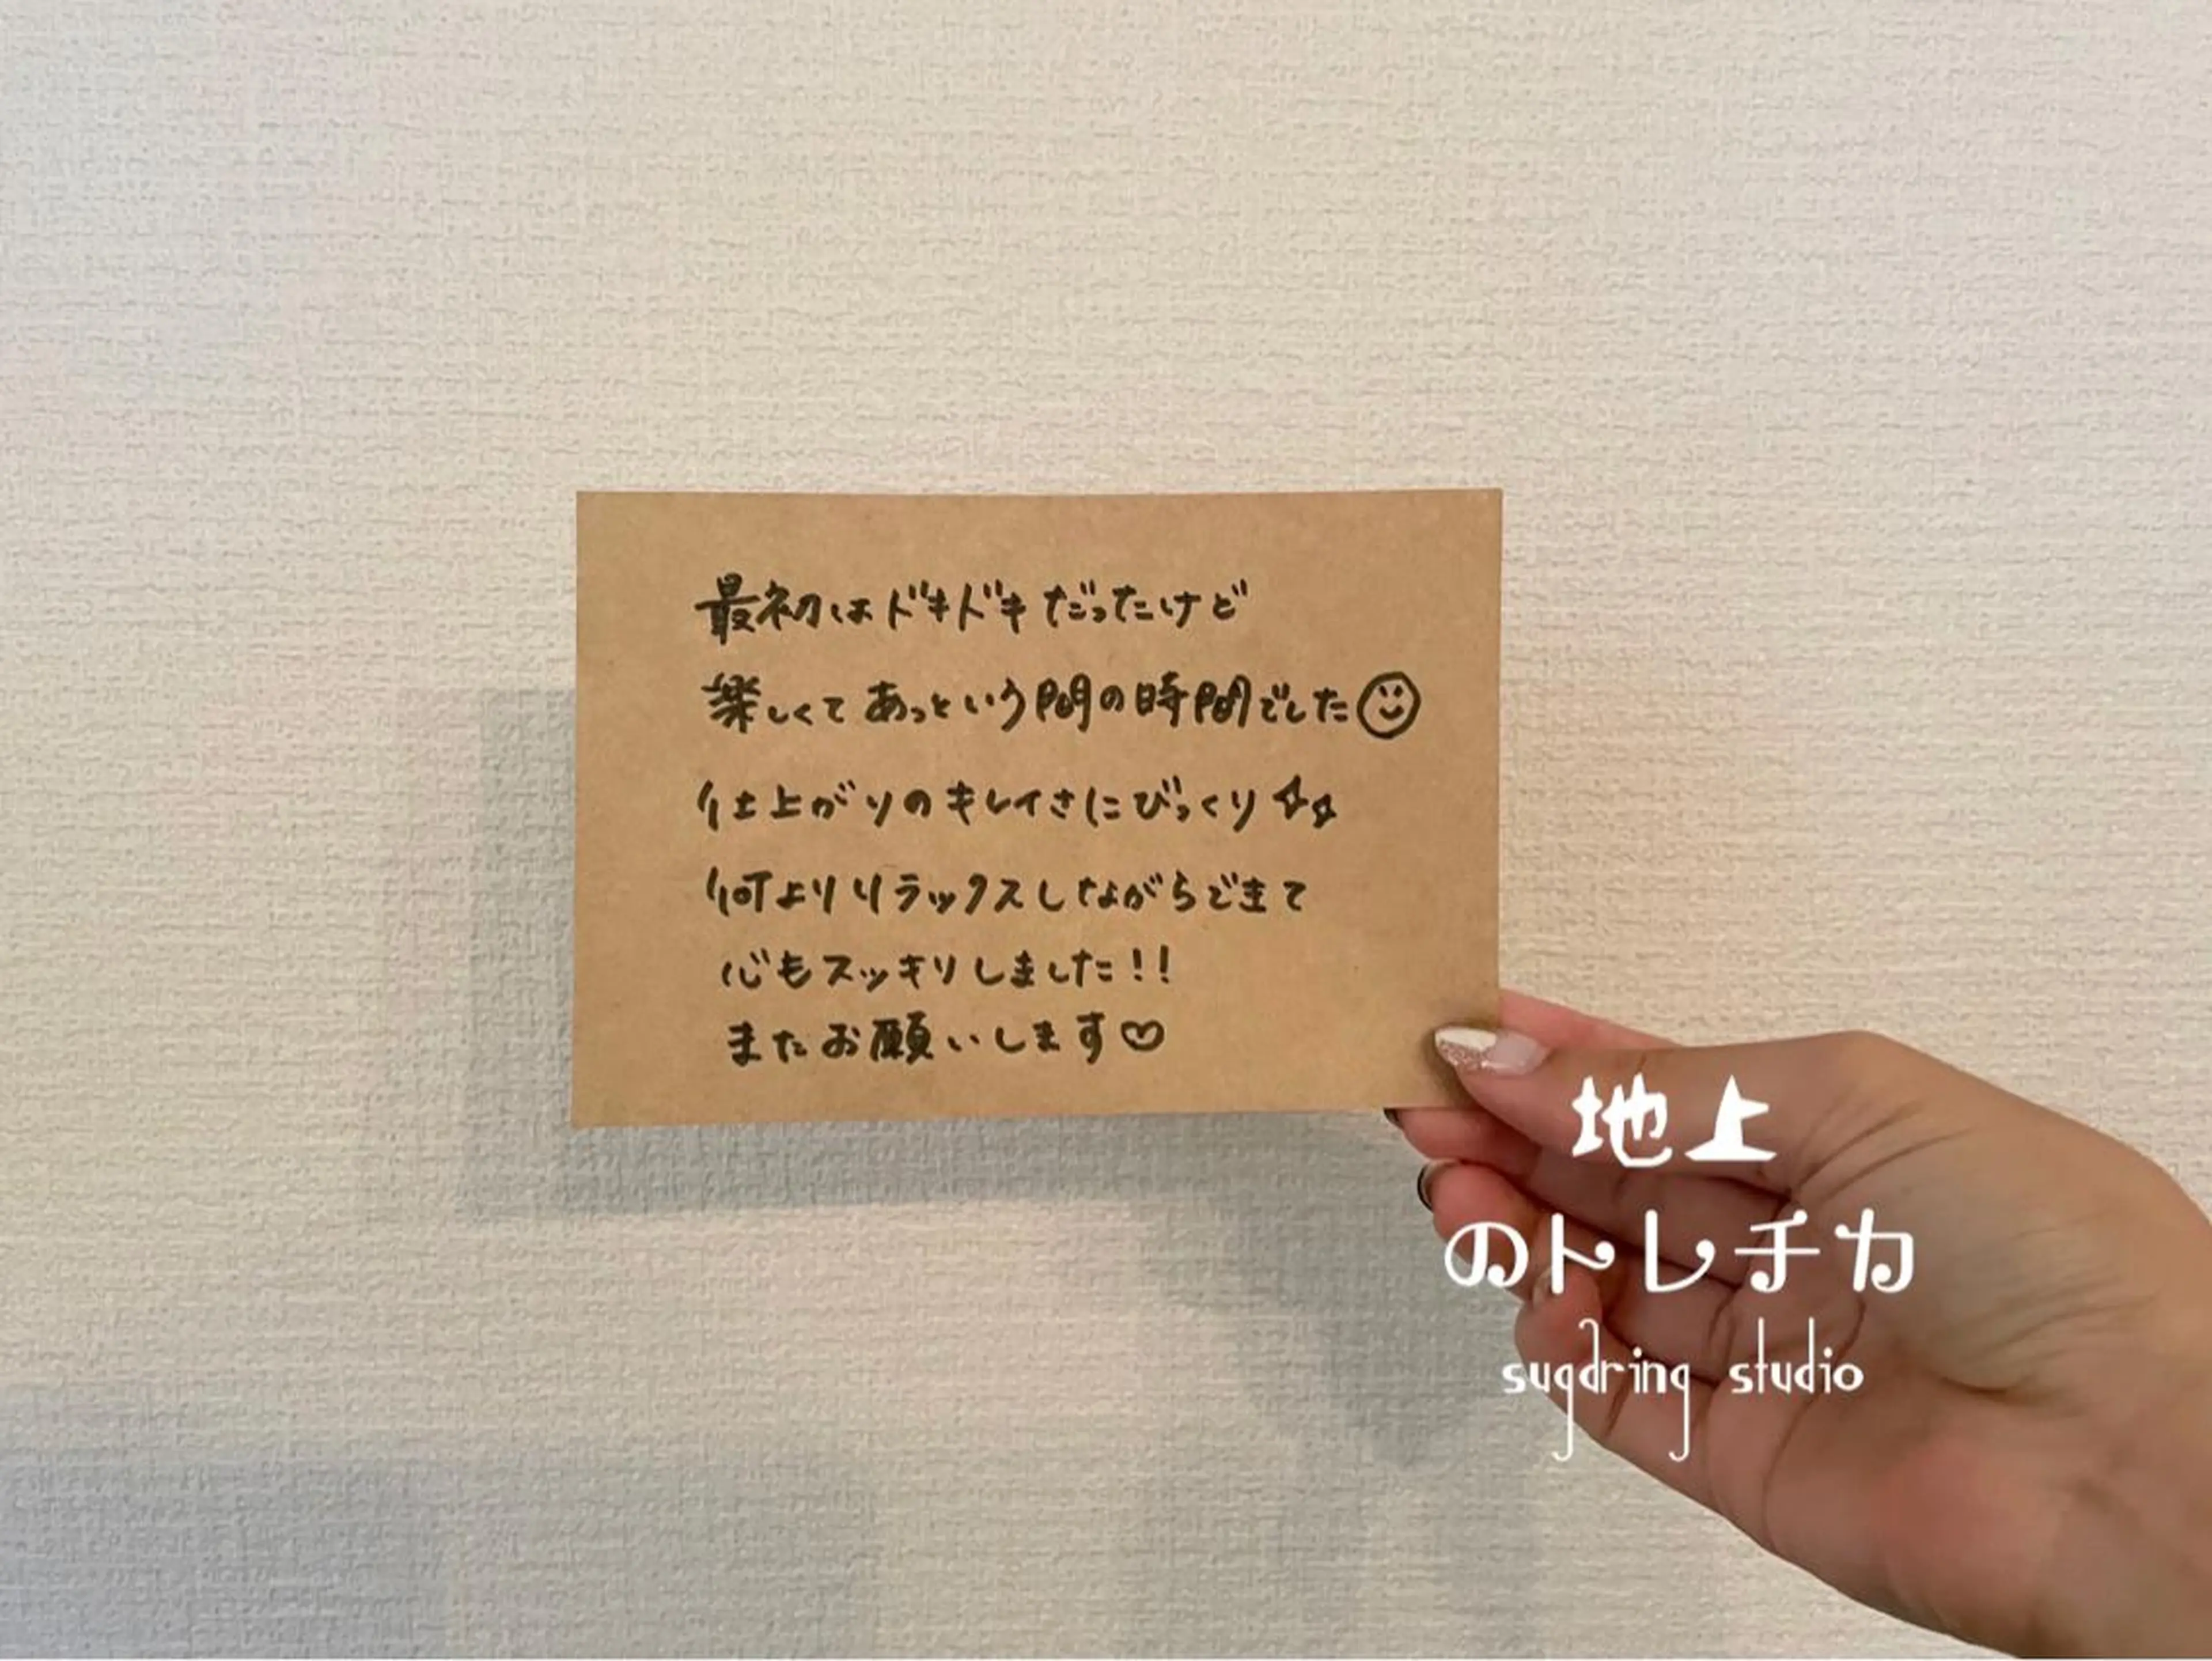 最初はドキドキだったけど
楽しくてあっという間の時間でした☺
仕上がりのキレイさにびっくり✨
何よりリラックスしながらできて
心もスッキリしました!!
またお願いします♡
地上
のトレチカ
sugaring studio